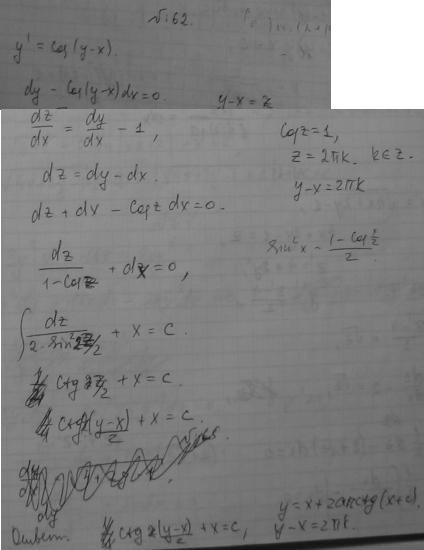 N:62.
y' = cos(y-x).
dy - cos(y-x)dx = 0. y-x = z
dz/dx = dy/dx - 1, cos z = 1,
dz = dy - dx. z = 2πk. k∈z.
dz + dx - cos z dx = 0. y-x = 2πk
dz/(1-cos z) + dx = 0, sin²x - (1-cos x/2)/2.
∫ dz/(2·sin² z/2) + x = c.
ctg z/2 + x = c.
ctg (y-x)/2 + x = c.
y = x + 2arcctg(x+c).
Ответ: ctg (y-x)/2 + x = c, y-x = 2πk.